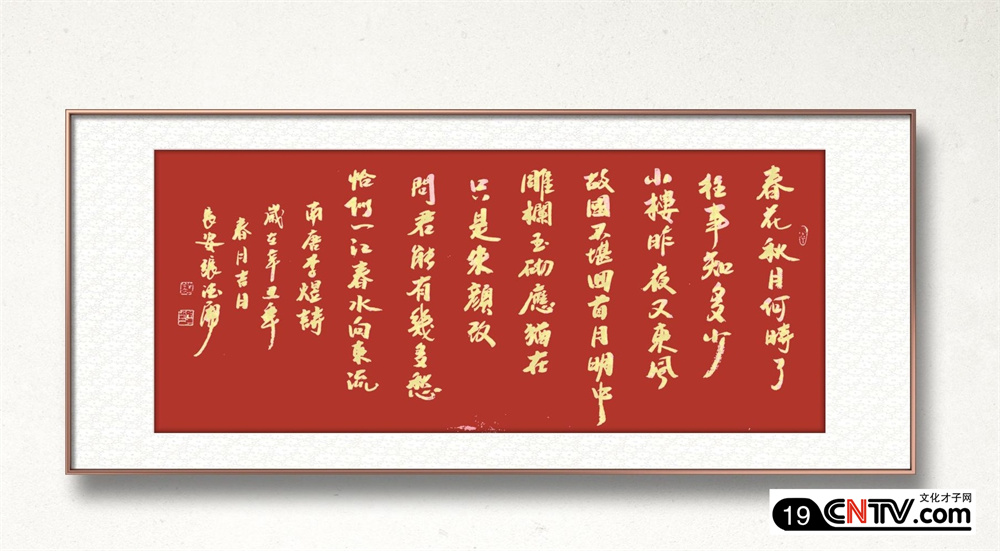 春花秋月何時了
往事知多少
小樓昨夜又東風
故國不堪回首月明中
雕欄玉砌應猶在
只是朱顏改
問君能有幾多愁
恰似一江春水向東流
南唐李煜詩
歲在辛丑年
春月吉日
長安張
19
CNTV.com
文化才子网